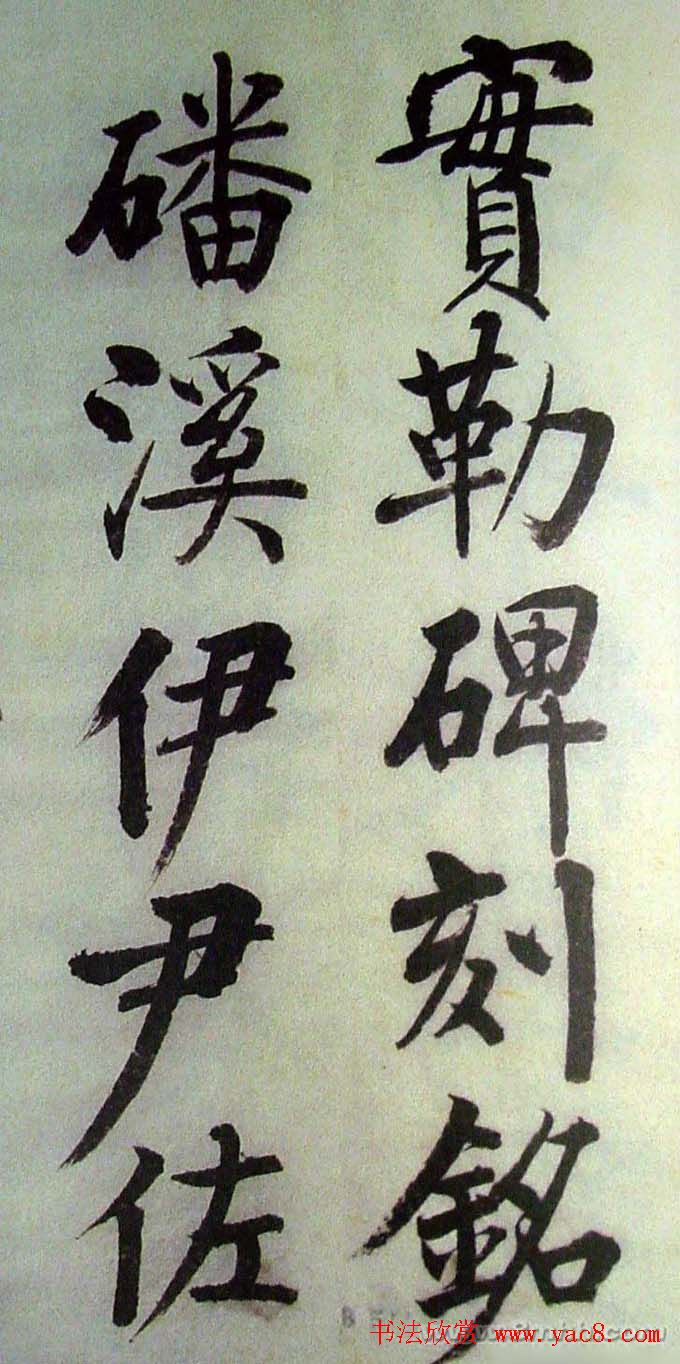 實勒碑刻銘
磻溪伊尹佐
书法欣赏 www.yac8.com